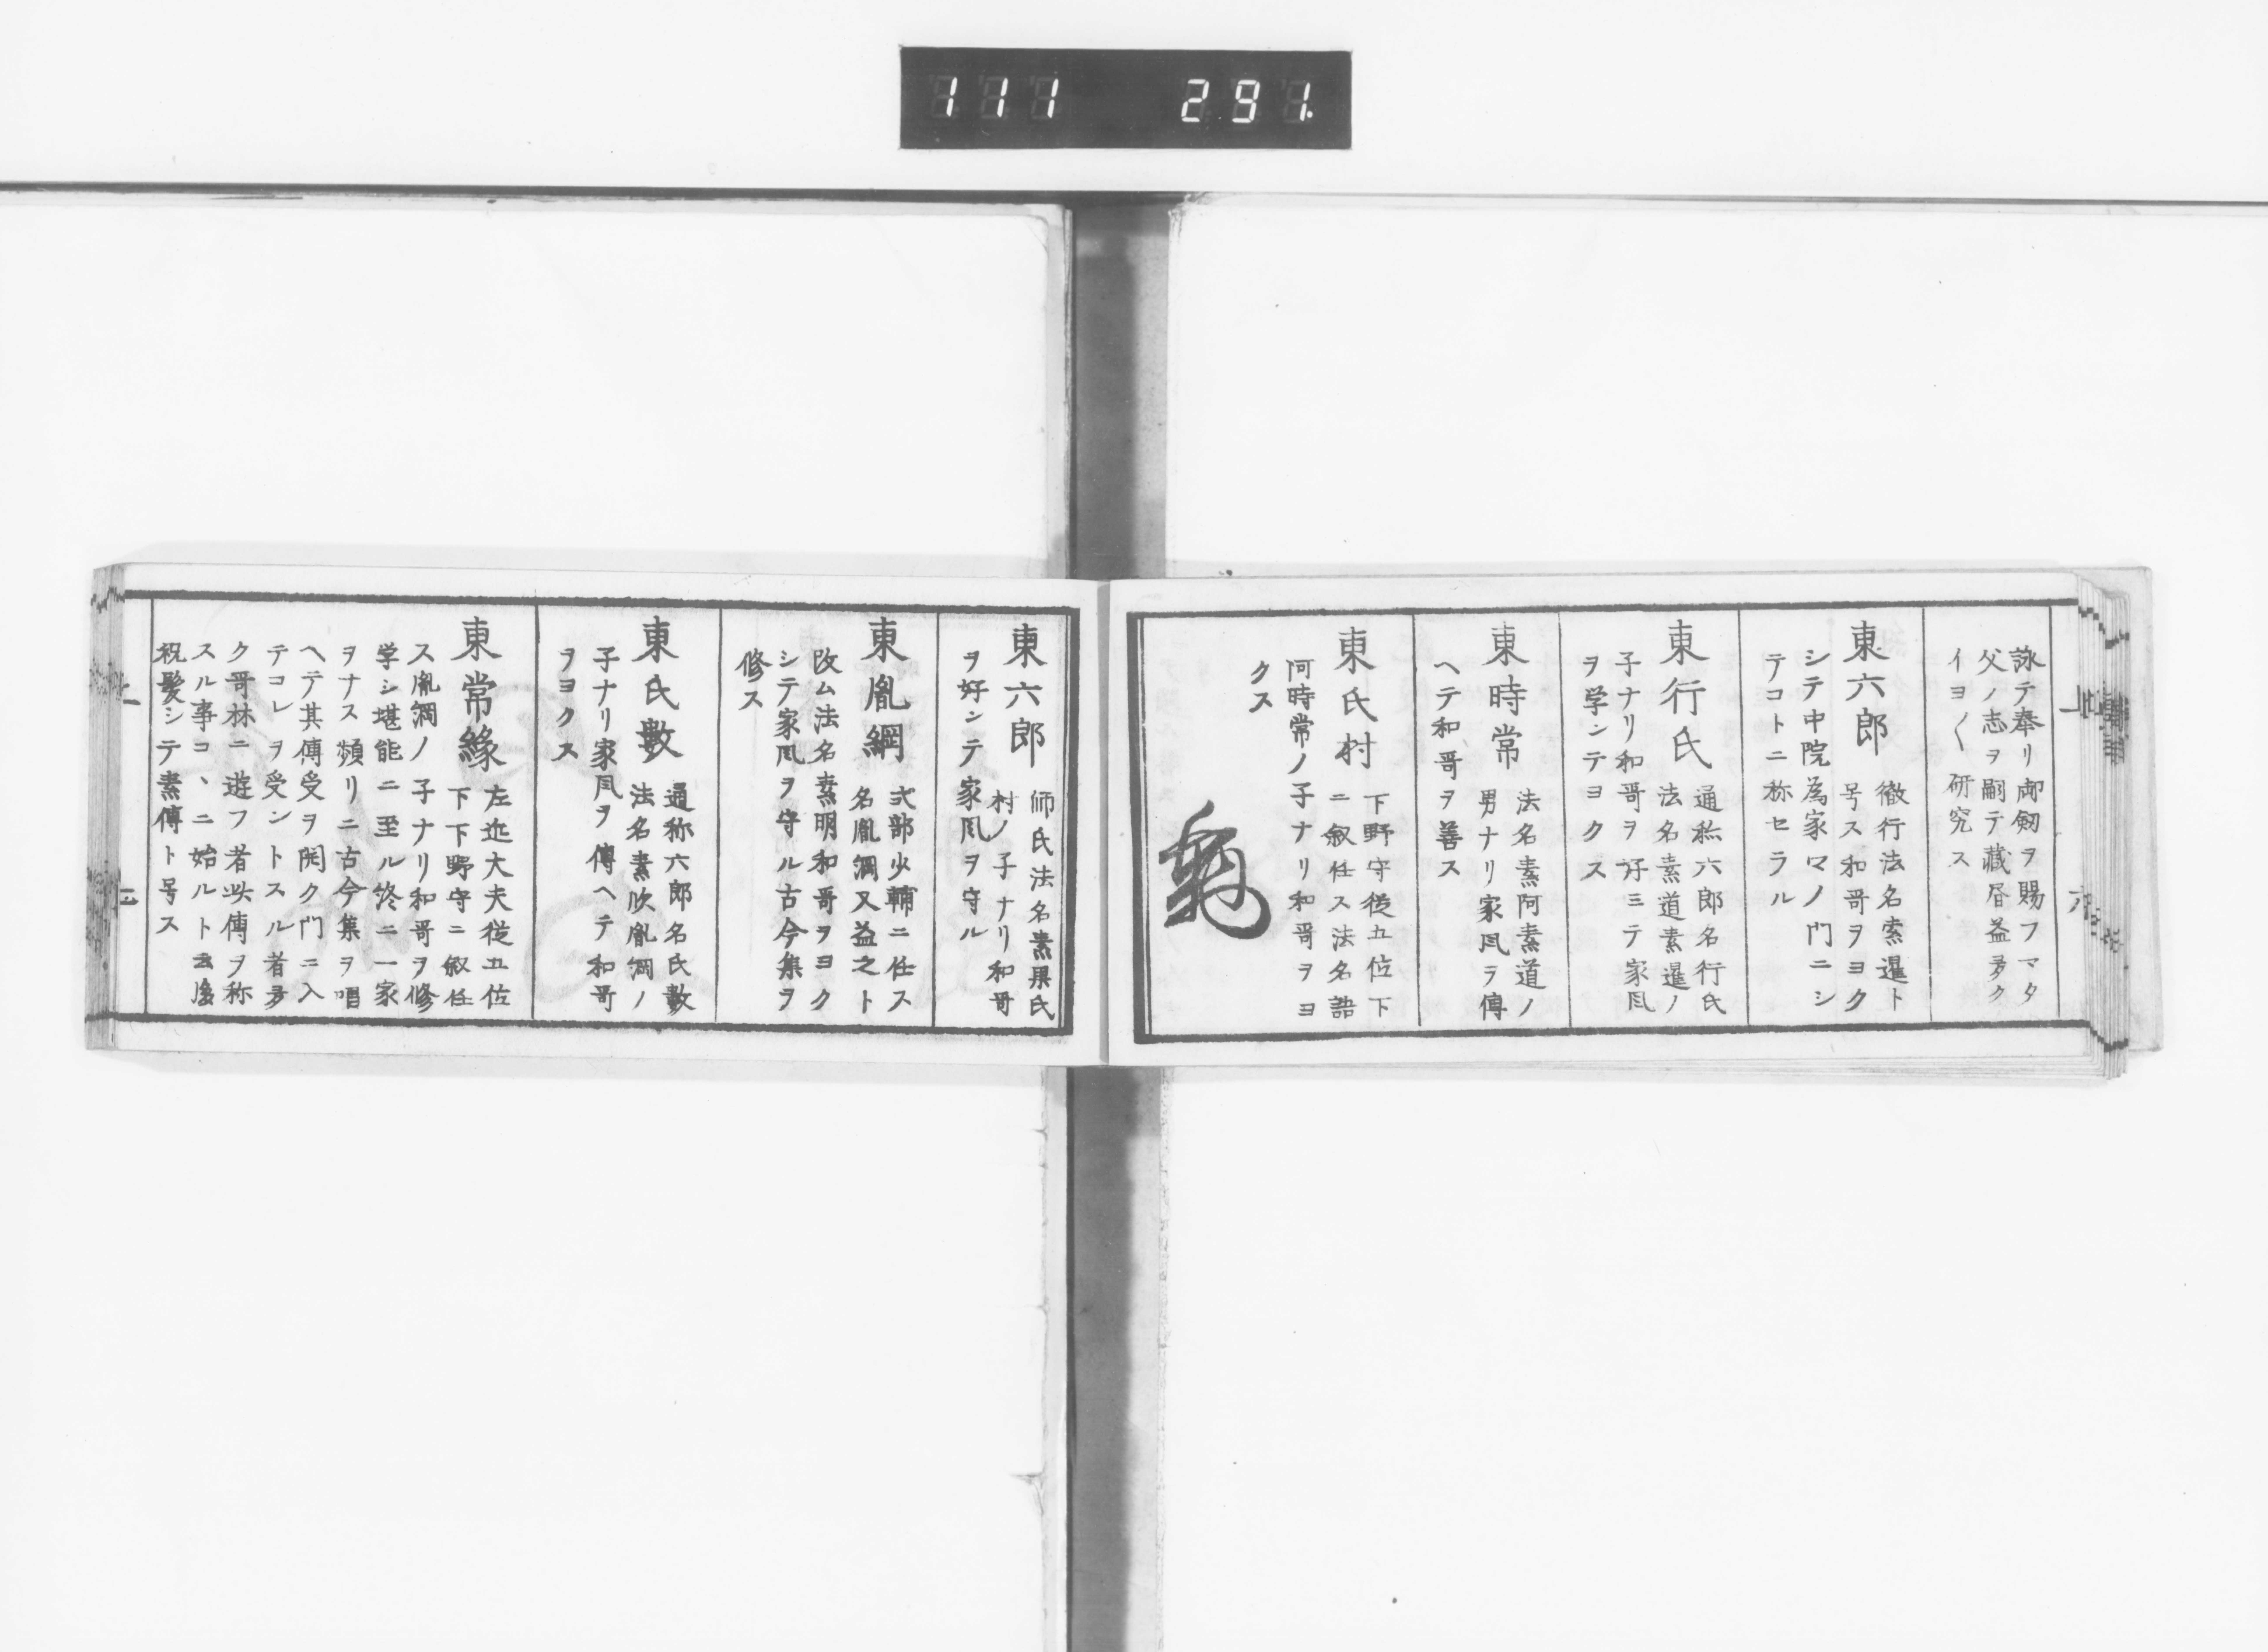 111 291
詠テ奉リ御劔ヲ賜フマタ
父ノ志ヲ嗣テ藏居益多ク
イヨ〱研究ス
東六郎
徹行法名索暹ト
号ス和哥ヲヨク
シテ中院為家マノ門ニシ
テコトニ称セラル
東行氏
通称六郎名行氏
法名素道素暹ノ
子ナリ和哥ヲ好ミテ家風
ヲ学ンテヨクス
東時常
法名素阿素道ノ
男ナリ家風ヲ傳
ヘテ和哥ヲ善ス
東氏村
下野守從五位下
ニ叙任ス法名語
阿時常ノ子ナリ和哥ヲヨ
クス
東六郎
師氏法名素果氏
村ノ子ナリ和哥
ヲ好ンテ家風ヲ守ル
東胤綱
式部少輔ニ任ス
名胤綱又益之ト
改ム法名素明和哥ヲヨク
シテ家風ヲ守ル古今集ヲ
修ス
東氏數
通称六郎名氏數
法名素欣胤綱ノ
子ナリ家風ヲ傳ヘテ和哥
ヲヨクス
東常緣
左近大夫從五位
下下野守ニ叙任
ス胤綱ノ子ナリ和哥ヲ修
学シ堪能ニ至ル終ニ一家
ヲナス頻リニ古今集ヲ唱
ヘテ其傳受ヲ開ク門ニ入
テコレヲ受ントスル者多
ク哥林ニ遊フ者必傳ヲ称
スル事コヽニ始ルト云後
祝髮シテ素傳ト号ス